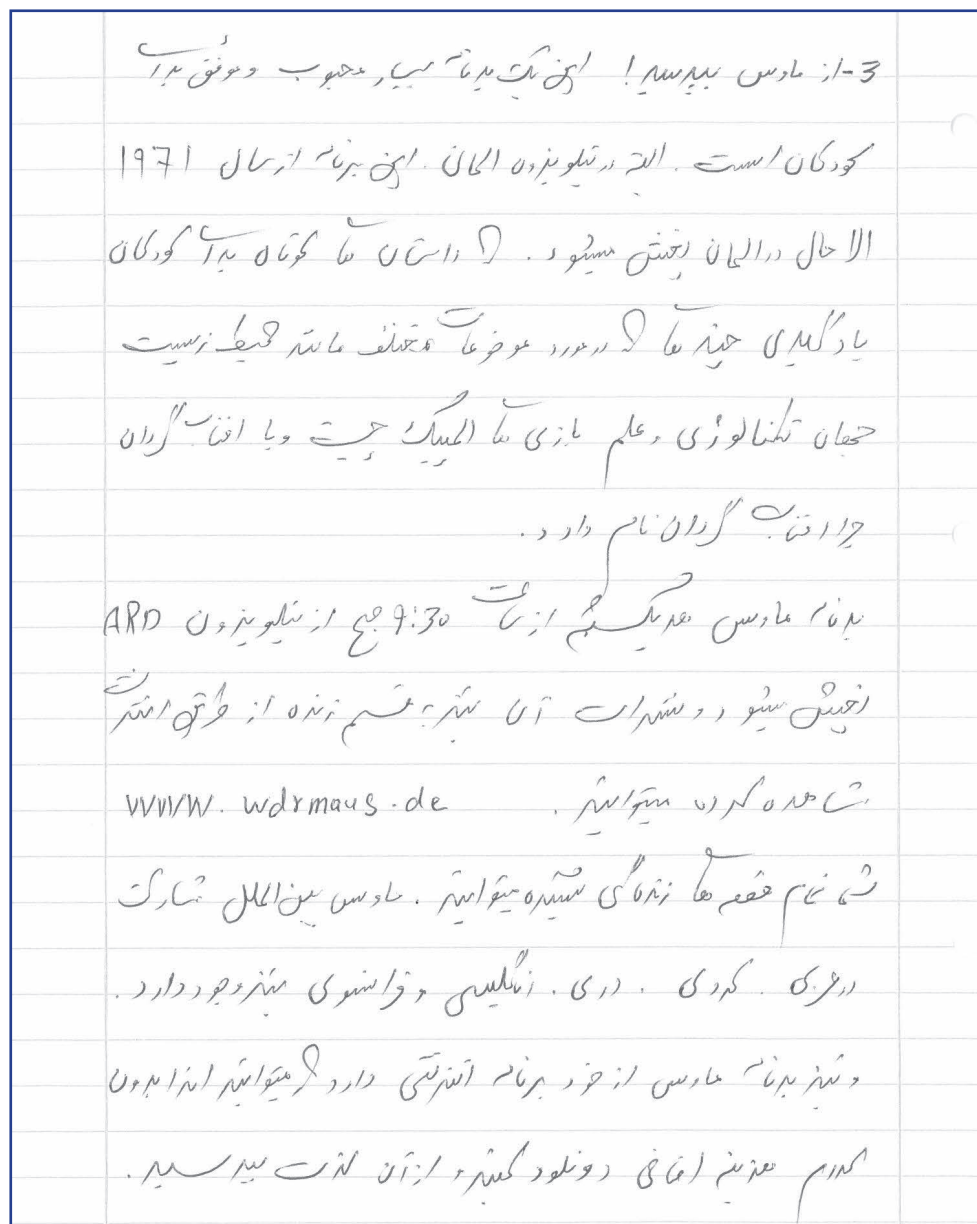 3-از ماوس بپرسید! این یک برنامه بسیار محبوب و موفق برای
کودکان است. البته در تیلویزون المان. این برنامه از سال 1971
الا حال در المان پخش میشود. که داستان های کوتاه برای کودکان
یادگیری چیز های که در مورد موضوعات مختلف مانند محیط زیست
جهان تکنالوژی و علم بازی های المپیک چیست ویا افتاب گردان
چرا افتاب گردان نام دارد.
برنامه ماوس هر یکشنبه از ساعت 9:30 صبح از تیلویزون ARD
پخش میشود و نشرات آن نیز به قسم زنده از طریق انترنت
مشاهده کرده میتوانید. www.wdrmaus.de
شما تمام قصه های زندگی شنیده میتوانید. ماوس بین المللی
در عربی. کردی. دری. انگلیسی و فرانسوی نیز وجود دارد.
و نیز برنامه ماوس از خود برنامه انترنتی دارد که میتوانید انرا بدون
کدام هزینه اضافی دونلود کنید و از آن لذت ببرید.